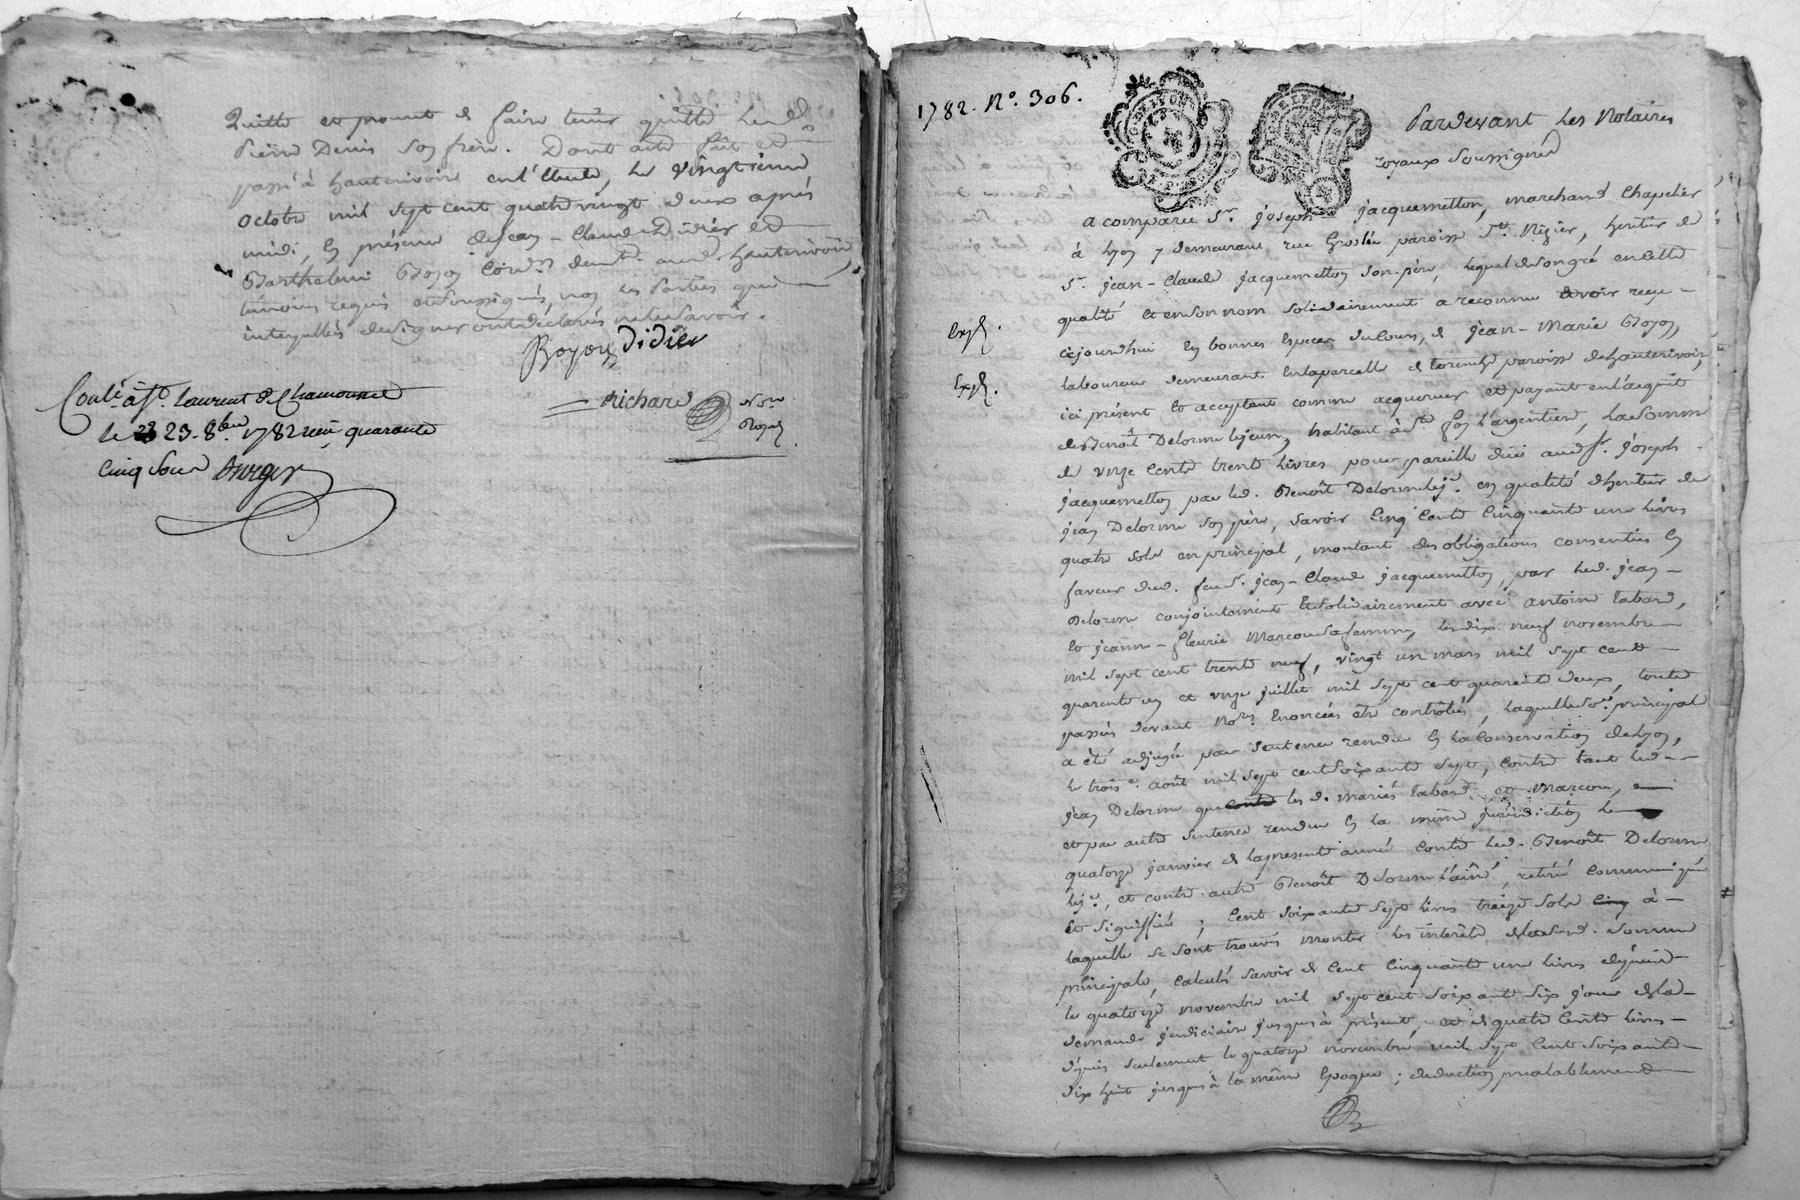 quitte et promet de faire tenir quitte led.
Pierre Denis son frere. Dont acte fait et
passé à hauterivoire en l'Etude, le vingtieme
octobre mil sept cent quatre vingt deux après
midi, en présence de Jean-Claude Didier et
Barthelemi Boyon Cord.r demt. aud. hauterivoire,
témoins requis et soussignés, non les parties qui
interpellées de signer ont déclaré ne le savoir.
Boyon Didier
Richard Nore
Royal
Conlé à St. Laurent de Chamousset
le 23 8bre 1782 reçu quarante
cinq sous Berger
1782. No. 306.
Pardevant les Notaires
royaux soussignés
a comparu Sr. Joseph Jacquemetton, marchand Chapelier
à Lyon y demeurant rue Grolée paroisse St. Nizier, héritier de
Sr. Jean-Claude Jacquemetton son père, lequel de son gré en cette
qualité et en son nom solidairement a reconnu avoir reçu
Expé.
cejourdhui en bonnes Especes du Cours, de Jean-Marie Boyon,
laboureur demeurant en la parcelle de paroisse de hauterivoire,
Expé.
ici présent et acceptant comme acquereur et payant en l'acquit
de Benoît Delorme lejeune, habitant à Ste. foy l'argentiere, la somme
de onze cents trente livres pour pareille due aud. Sr. Joseph
Jacquemetton par led. Benoît Delorme leje. en qualité d'heritier de
Jean Delorme son père, savoir Cinq Cents Cinquante une livres
quatre sols en principal, montant des obligations consenties en
faveur dud. feu Sr. Jean-Claude Jacquemetton, par led. Jean
Delorme conjointement et solidairement avec antoine Tabard,
et Jeanne-fleurie Marcou sa femme, les dix neuf novembre
mil sept cent trente neuf, vingt un mars mil sept cent
quarante un et onze juillet mil sept cent quarante deux, toutes
passées devant Nores. Enoncées être contrôlées, laquelle se. principal
a été adjugée par sentence rendue en la Conservation de Lyon,
le trois e. août mil sept cent soixante sept, contre tant led.
Jean Delorme que les d. mariés Tabard et Marcou,
et par autre sentence rendue en la même jurisdiction le
quatorze janvier de la présente année contre led. Benoît Delorme
leje., et contre autre Benoît Delorme l'aîné, retirée communiquée
et signiffiée ; Cent soixante sept livres treize sols à
laquelle se sont trouvés monter les intérêts de lad. somme
principale, calculés savoir de Cent Cinquante une livres depuis
le quatorze novembre mil sept cent soixante six jour de la
demande judiciaire jusques à présent, et de quatre Cents livres
depuis seulement le quatorze novembre mil sept Cent soixante
dix huit jusques à la même Epoque ; déduction préalablement